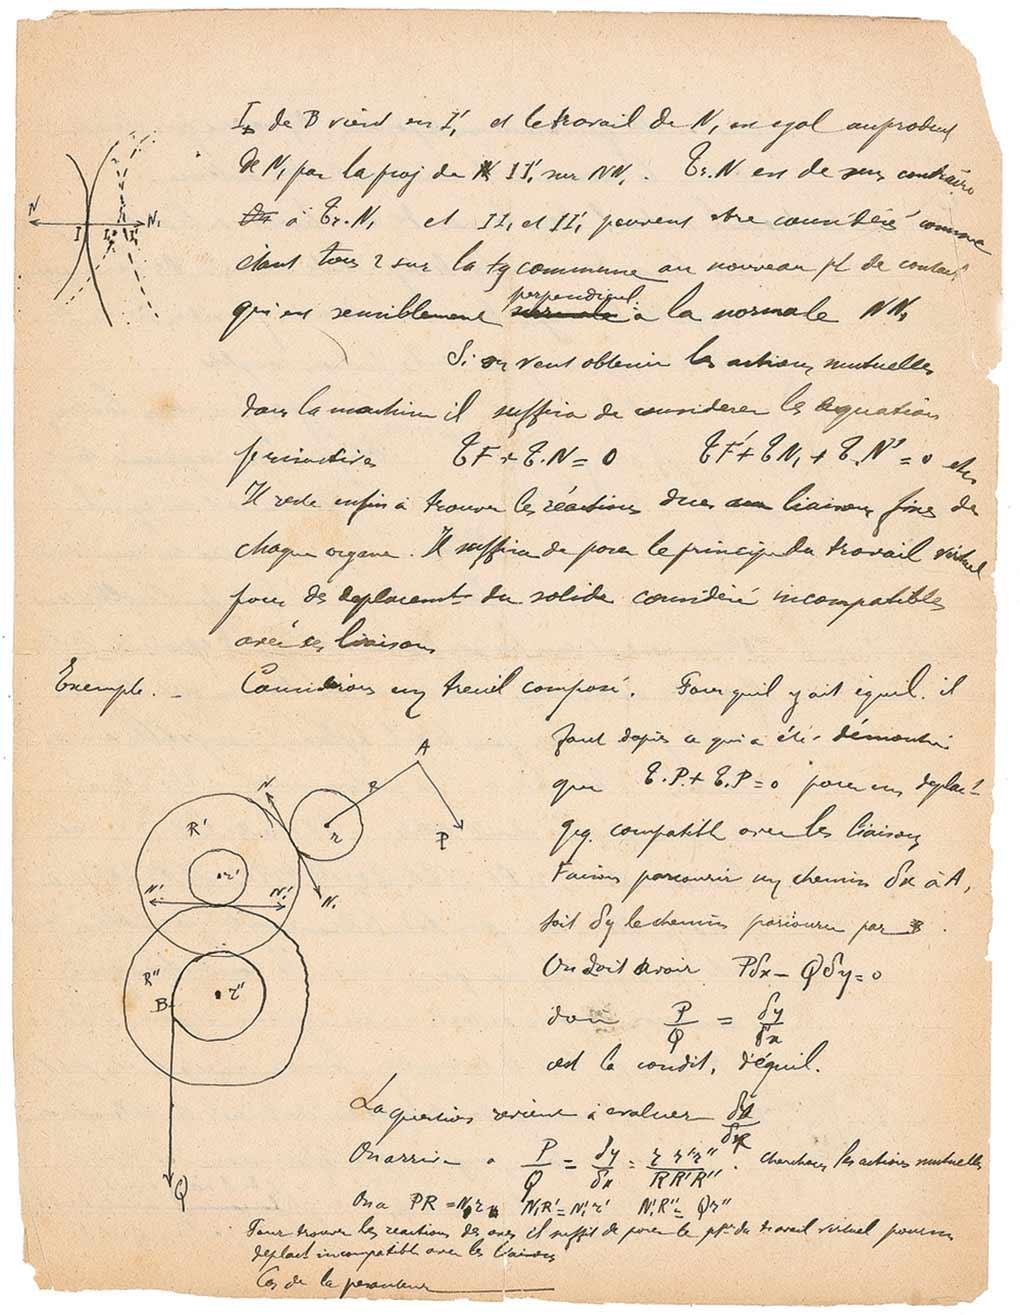 I₁ de B vient en I'₁ et le travail de N₁ est egal au produit
de N₁ par la proj de II'₁ sur NN₁. Tr.N est de sens contraire
à Tr.N₁ et II₁ et II'₁ peuvent être considéré comme
étant tous 2 sur la tg commune au nouveau pt de contact
qui est sensiblement perpendicul. à la normale NN₁
N I I₁ I'₁ N₁
Si on veut obtenir les actions mutuelles
dans la machine il suffira de considerer les équations
primitives TF + T.N = 0 TF' + TN₁ + T.N'' = 0 etc
Il reste enfin à trouver les réactions dues aux liaisons fixes de
chaque organe. Il suffira de poser le principe du travail virtuel
pour des deplacemts du solide considéré incompatibles
avec ses liaisons
Exemple. _ Considérons un treuil composé. Pour qu'il y ait équil. il
faut d'après ce qui a été démontré
que T.P. + T.P = 0 pour un deplact
qcq. compatible avec les liaisons
Faisons parcourir un chemin δx à A,
soit δy le chemin parcouru par B.
On doit avoir Pδx – Qδy = 0
donc P/Q = δy/δx
est la condit. d'équil.
A
R
P
N
r
R'
r'
N'
N'₁
N₁
R''
B
r''
Q
La question revient à evaluer
On arrive à P/Q = δy/δx = r r' r''/R R' R''. Cherchons les actions mutuelles
On a PR = N₁r N₁R' = N'₁r' N'₁R'' = Qr''
Pour trouver les reactions des axes il suffit de poser le ppe du travail virtuel pour un
deplact incompatible avec les liaisons
Cas de la pesanteur